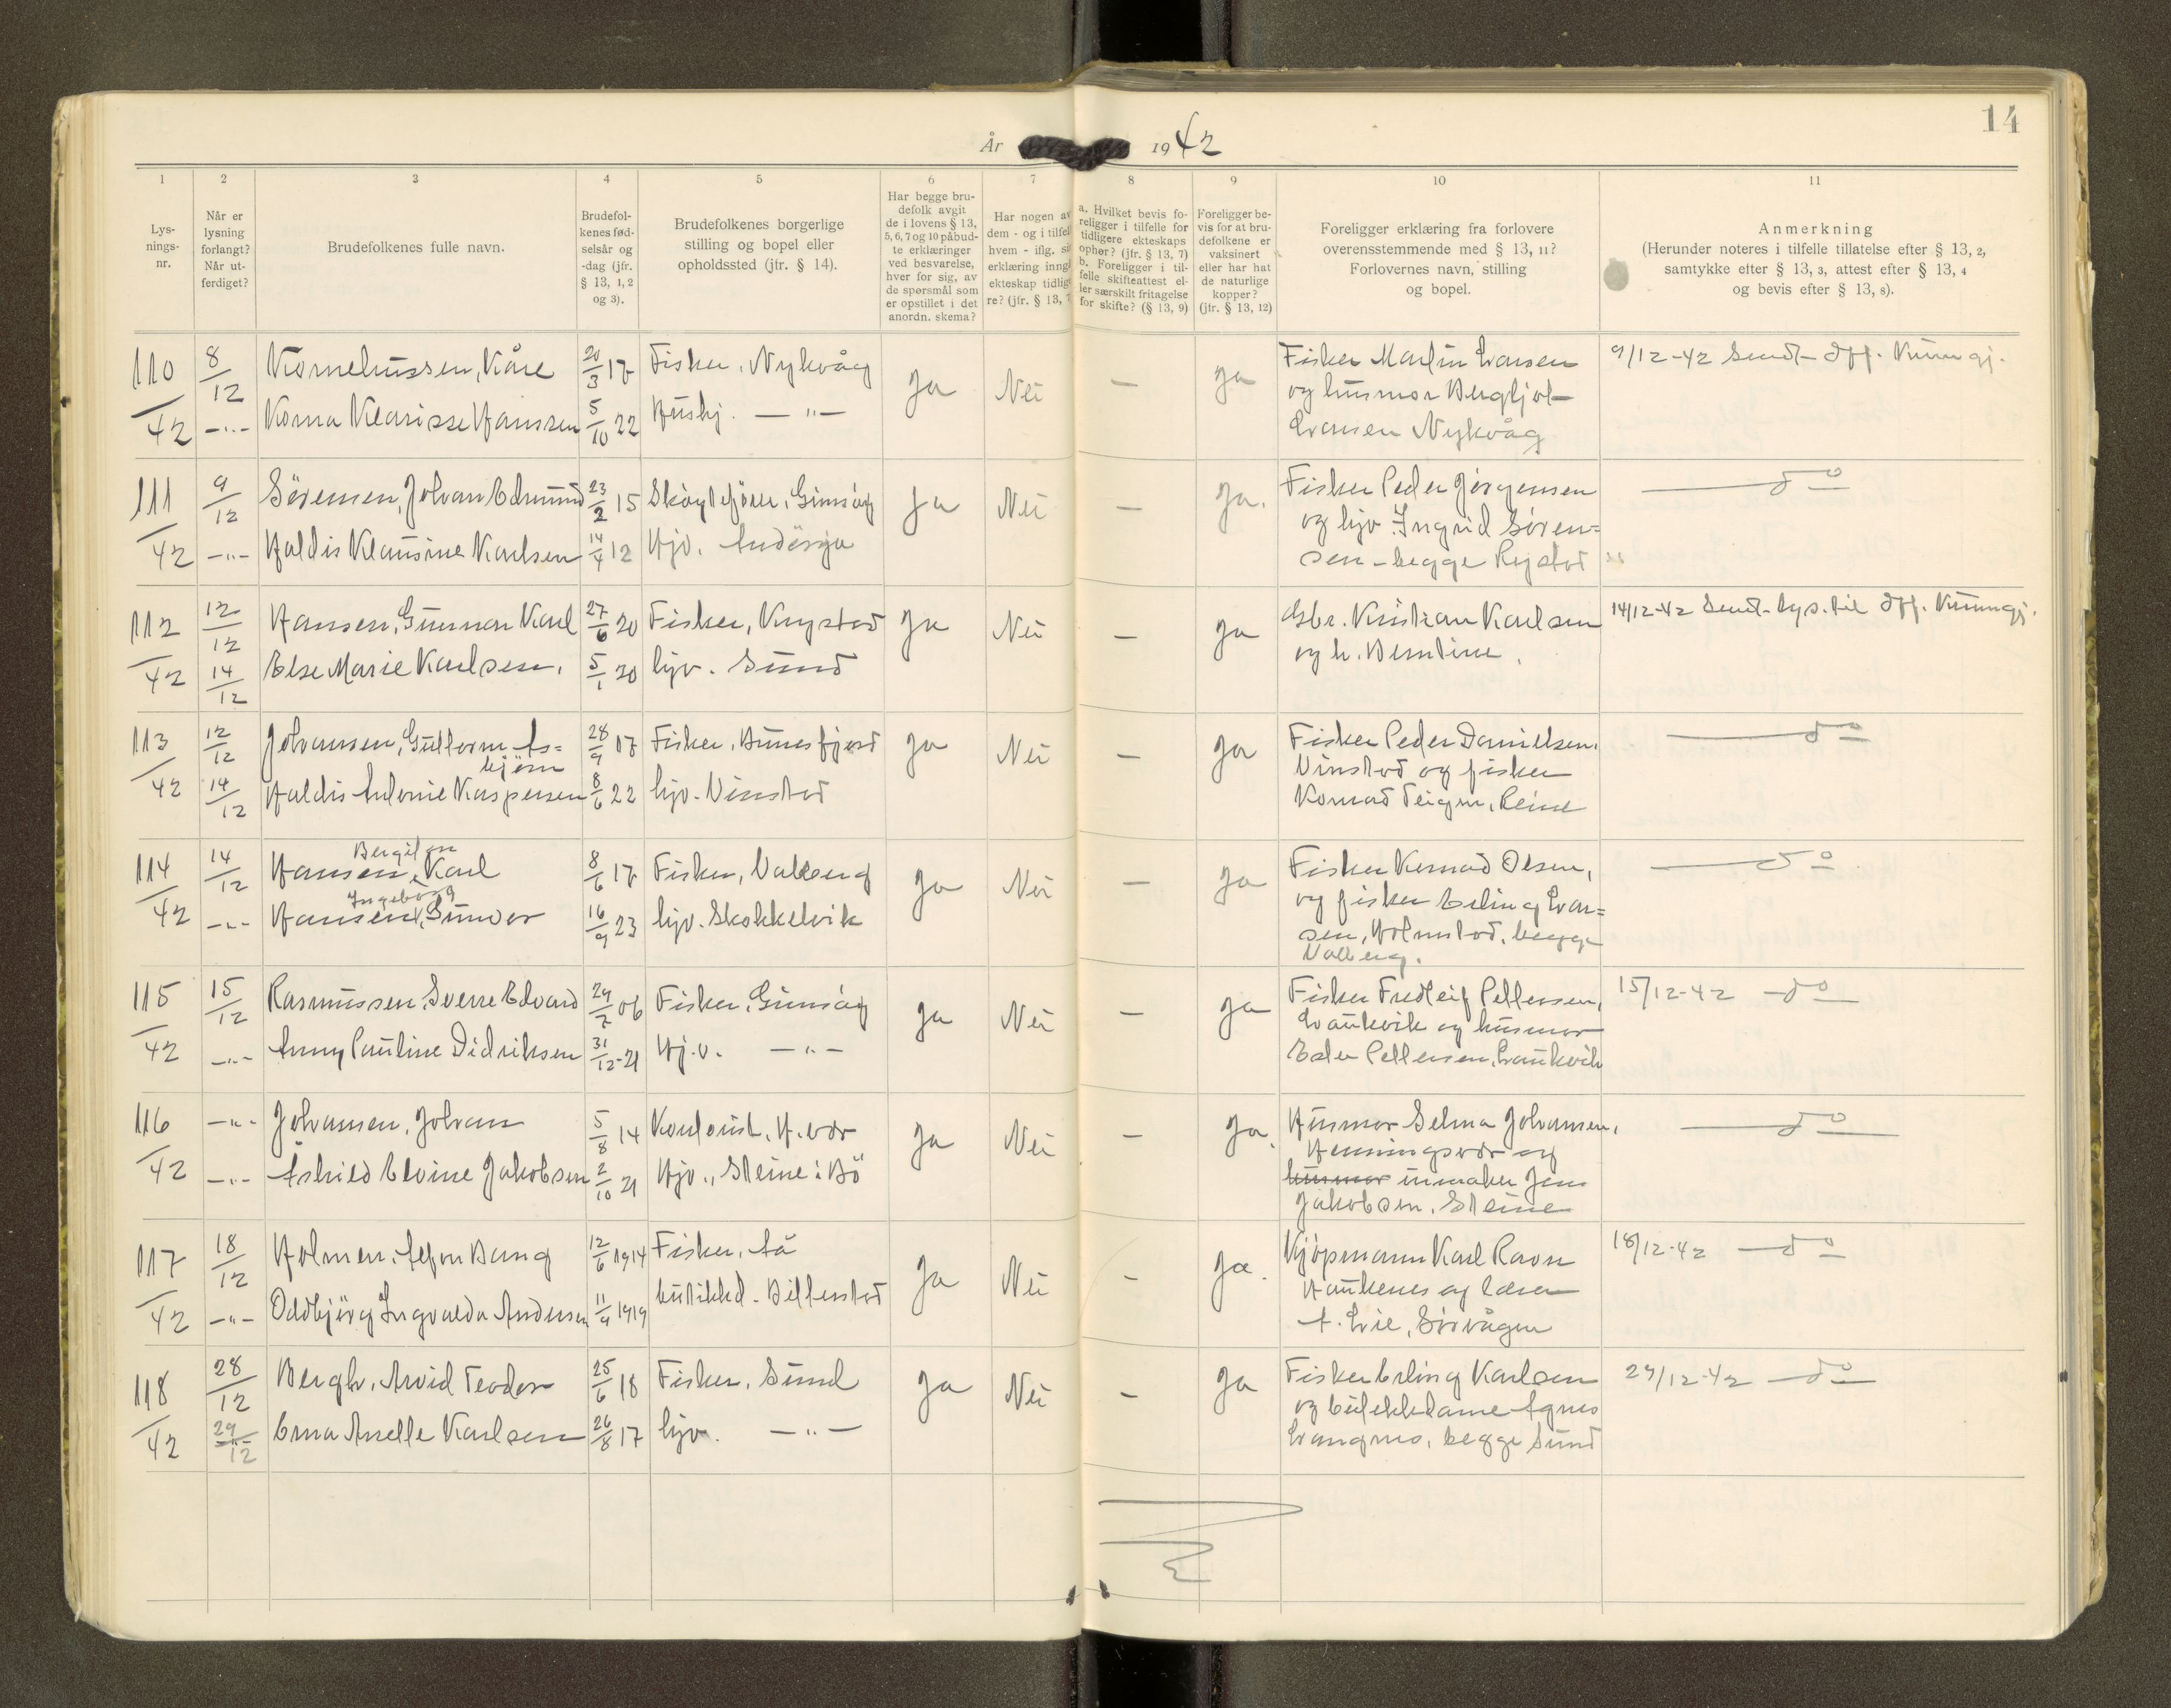 14
År 1942
1 2 3 4 5 6 7 8 9 10 11
Lys-
nings-
nr.
Når er
lysning
forlangt?
Når ut-
ferdiget?
Brudefolkenes fulle navn.
Brudefol-
kenes fød-
selsår og
-dag (jfr.
§ 13, 1, 2
og 3).
Brudefolkenes borgerlige
stilling og bopel eller
opholdssted (jfr. § 14).
Har begge bru-
defolk avgit
de i lovens § 13,
5, 6, 7 og 10 påbud-
te erklæringer
ved besvarelse,
hver for sig, av
de spørsmål som
er opstillet i det
anordn. skema?
Har nogen av
dem - og i tilfel
hvem - iflg. si
erklæring inngå
ekteskap tidlige
re? (jfr. § 13, 7
a. Hvilket bevis fo-
religger i tilfelle for
tidligere ekteskaps
ophør? (jfr. § 13, 7)
b. Foreligger i til-
felle skifteattest el-
ler særskilt fritagelse
for skifte? (§ 13, 9)
Foreligger be-
vis for at bru-
defolkene er
vaksinert
eller har hat
de naturlige
kopper?
(jfr. § 13, 12)
Foreligger erklæring fra forlovere
overensstemmende med § 13, 11?
Forlovernes navn, stilling
og bopel.
Anmerkning
(Herunder noteres i tilfelle tillatelse efter § 13, 2,
samtykke efter § 13, 3, attest efter § 13, 4
og bevis efter § 13, 8).
110/42 8/12 Korneliussen, Kåre 20/3 17 Fisker, Nykvåg Ja Nei — Ja Fisker Martin Larsen 9/12-42 Sendt Off. Kunngj.
-"- Korna Klarisse Hanssen 5/10 22 Hushj. —"— og husmor Bergljot
Larsen Nykvåg
111/42 9/12 Sörensen, Johan Edmund 23/2 15 Skøyteförer, Gimsöy Ja Nei — Ja. Fisker Peder Jörgensen — do
-"- Haldis Klausine Karlsen 14/4 12 Hjv. Andörja og hjv. Ingrid Sören=
sen - begge Rystad
112/42 12/12 Hansen, Gunnar Karl 27/6 20 Fisker, Krystad Ja Nei — Ja Gbr. Kristian Karlsen 14/12-42 Sendt lys. til Off. Kunngj.
14/12 Else Marie Karlsen. 5/1 20 hjv. Sund og h. Berntine.
113/42 12/12 Johansen, Guttorm As= 28/9 17 Fisker, Bunesfjord Ja Nei — Ja Fisker Peder Danielsen, — do
björn
14/12 Haldis Antonie Kaspersen 8/6 22 hjv. Vinstad Vinstad og fisker
Konrad Teigen, Reine
114/42 14/12 Hansen, Karl 8/6 17 Fisker, Valberg Ja Nei — Ja Fisker Konrad Olsen, — do
Ingeborg
-"- Hansen, Gunvor 16/9 23 hjv. Skokkelvik og fisker Erling Lar=
sen, Holmstad, begge
Valberg.
115/42 15/12 Rasmussen, Sverre Edvard 29/7 06 Fisker, Gimsöy Ja Nei — Ja Fisker Fredleif Pettersen, 15/12-42 — do
-"- Anny Pauline Didriksen 31/12-21 Hj.v. —"— Laukvik og husmor
Ester Pettersen, Laukvik
116/42 -"- Johansen, Johan 5/8 14 Kontorist, H.vær Ja Nei — Ja. Husmor Selma Johansen, — do
-"- Åshild Elvine Jakobsen 2/10 21 Hjv., Steine i Bö Henningsvær og
husmor urmaker Jens
Jakobsen, Steine
117/42 18/12 Holmen, Alfon Bang 12/6 1914 Fisker, Å Ja Nei — Ja. Kjöpmann Karl Ravn 18/12-42 — do
-"- Oddbjörg Ingvalda Andersen 11/9 1919 butikkd. Billenstad Haukenes og lærer
A. Lie, Sörvågen
118/42 28/12 Bergh, Arvid Teodor 25/6 18 Fisker, Sund Ja Nei — Ja Fisker Erling Karlsen 29/12-42 — do
29/12 Erna Anette Karlsen 26/8 17 hjv. —"— og butikkdame Agnes
Langnes, begge Sund